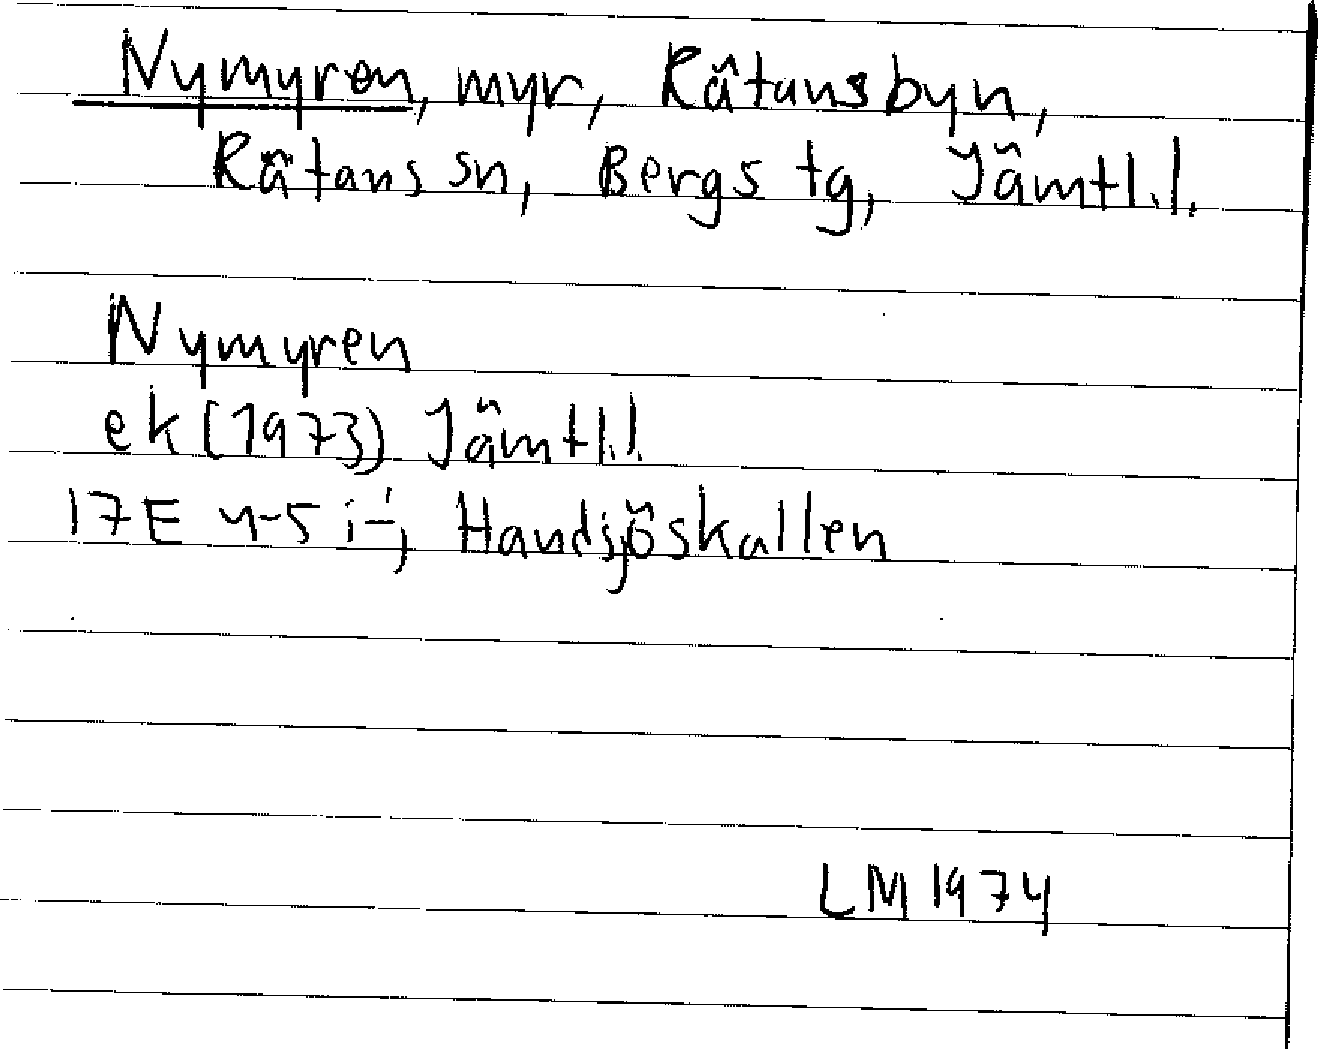 Nymyren, myr, Rätansbyn,
Rätans sn, Bergs tg, Jämtl.l.
Nymyren
ek (1973) Jämtl.l.
17E 4-5 i-j, Handsjöskallen
LM 1974